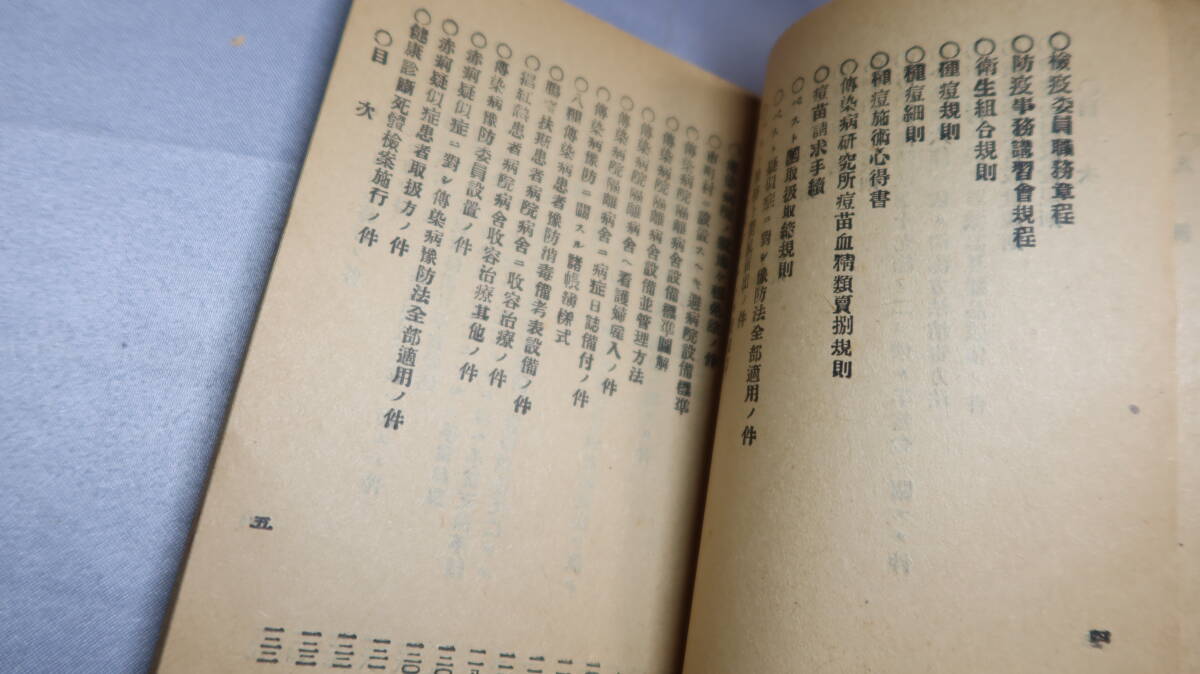 ○檢疫委員職務章程
○防疫事務講習會規程
○衛生組合規則
○種痘規則
○種痘細則
○種痘施術心得書
○傳染病硏究所痘苗血精類賣捌規則
○痘苗請求手續
○ペスト菌取扱取締規則
○ペスト疑似症ニ對シ豫防法全部適用ノ件
四
○市町村ニ設設スヘキ避病院設備標準
○傳染病院隔離病舍設備標準圖解
○傳染病院隔離病舍設備並管理方法
○傳染病院隔離病舍ヘ看護婦雇入ノ件
○傳染病院隔離病舍ニ病症日誌備付ノ件
○傳染病豫防ニ關スル諸帳簿樣式
○八種傳染病患者豫防消毒備考表設備ノ件
○膓窒扶斯患者病院病舍ニ收容治療ノ件
○猩紅熱患者病院病舍收容治療其他ノ件
○傳染病豫防委員設置ノ件
○赤痢疑似症ニ對シ傳染病豫防法全部適用ノ件
○赤痢疑似症患者取扱方ノ件
○健康診斷死體檢案施行ノ件
○目次
五